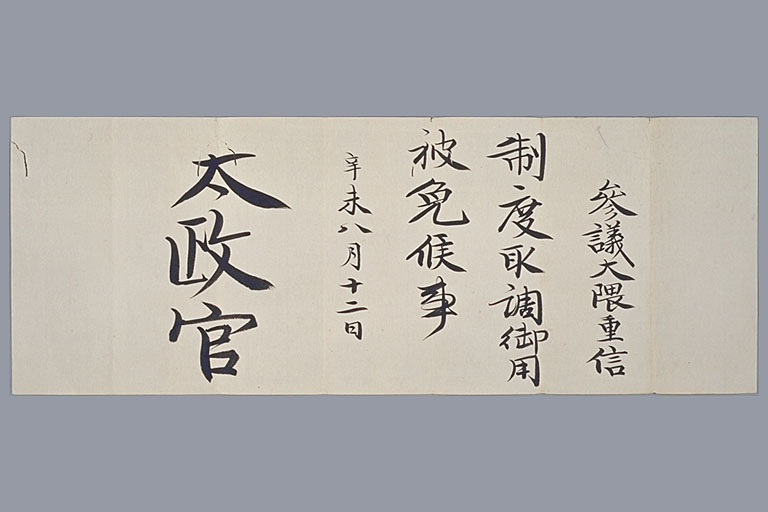 參議大隈重信
制度取調御用
被免候事
辛未八月十二日
太政官